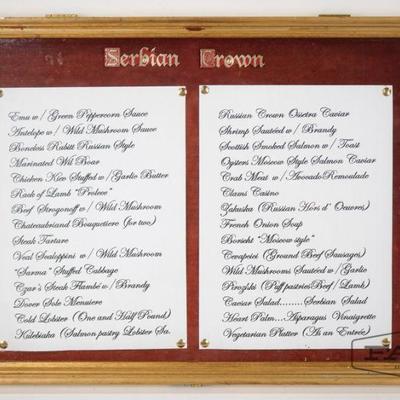 Serbian Crown
Emu w/ Green Peppercorn Sauce
Antelope w/ Wild Mushroom Sauce
Boneless Rabitt Russian Style
Marinated Wil Boar
Chicken Kiev Stuffed w/Garlic Butter
Rack of Lamb "Prolece"
Beef Strogonoff w/ Wild Mushroom
Chateaubriand Bouquetiere (for two)
Steak Tartare
Veal Scaloppini w/ Wild Mushroom
"Sarma" Stuffed Cabbage
Czar's Steak Flambé w/ Brandy
Dover Sole Meuniere
Cold Lobster (One and Half Pound)
Kulebiaka (Salmon pastry Lobster Sa.
Russian Crown Ossetra Caviar
Shrimp Sautéed w/ Brandy
Scottish Smoked Salmon w/ Toast
Oysters Moscow Style Salmon Caviar
Crab Meat w/ Avocado Remoulade
Clams Casino
Zakuska (Russian Hors d' Oeuvres)
French Onion Soup
Borscht "Moscow style"
Cevapcici (Ground Beef Sausages)
Wild Mushrooms Sautéed w/ Garlic
Pirozhki (Puff pastries Beef/Lamb)
Caesar Salad........Serbian Salad
Heart Palm...Asparagus Vinaigrette
Vegetarian Platter (As an Entrée)